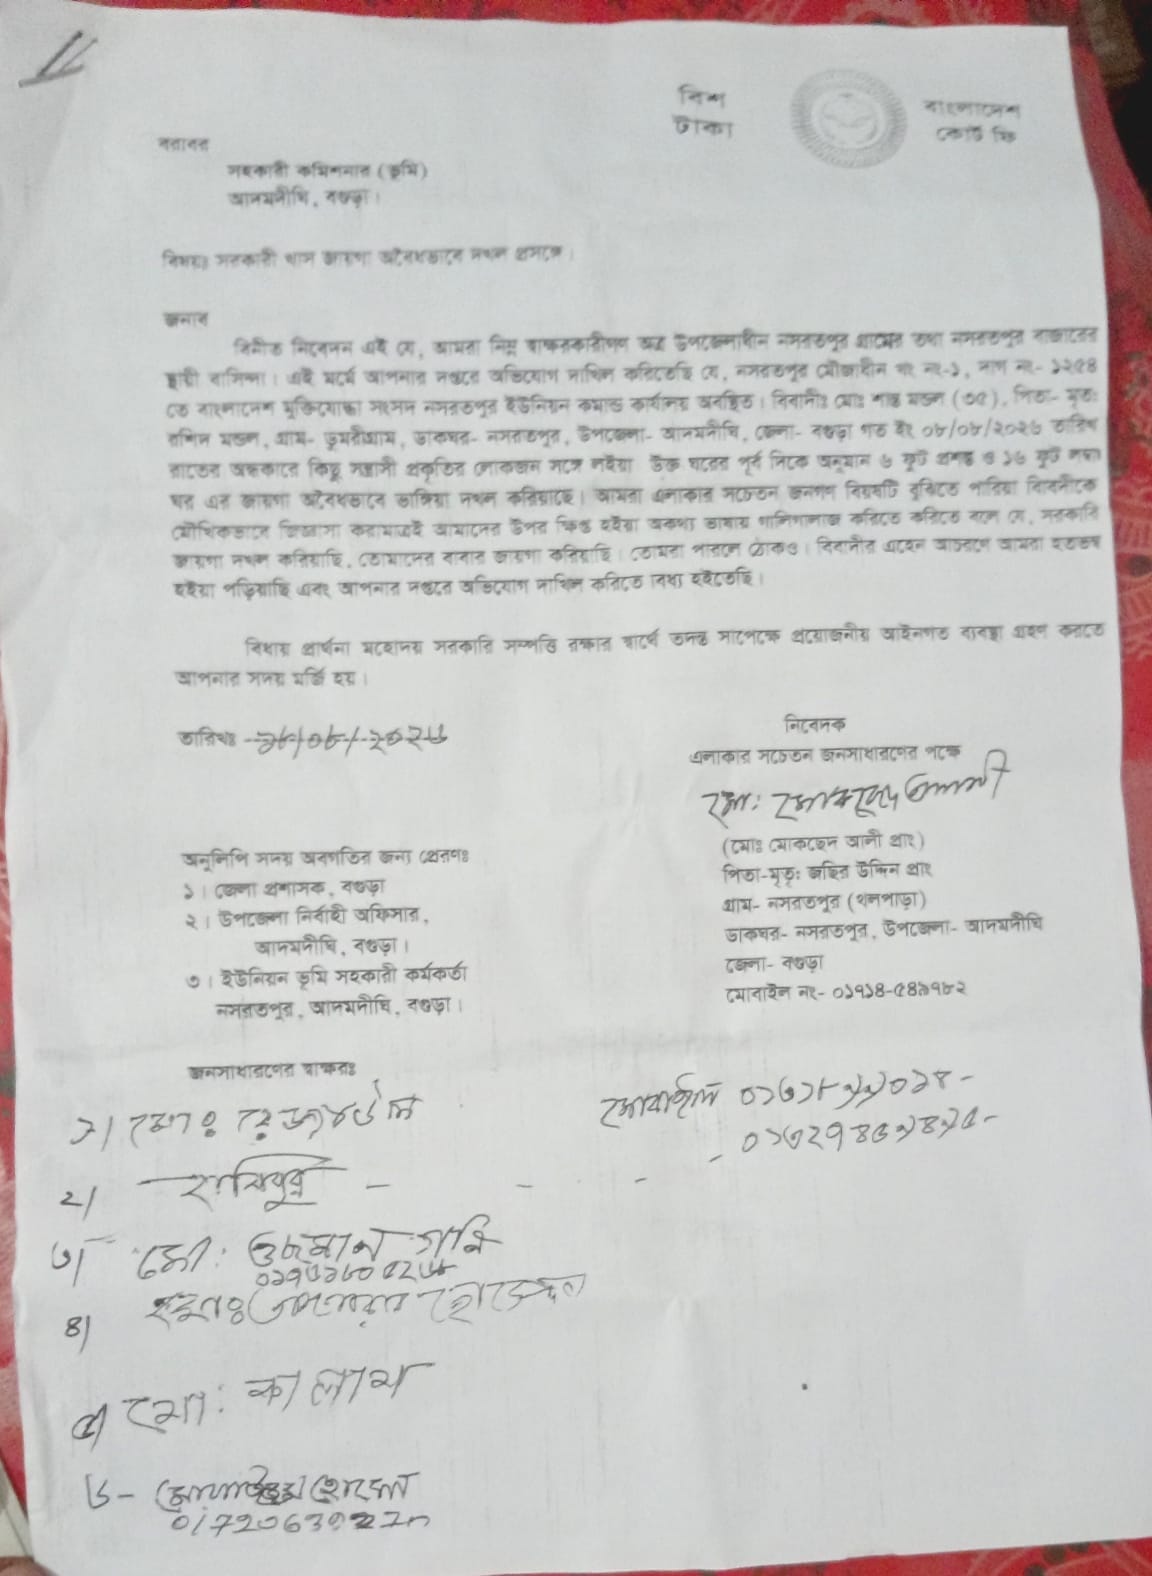 বিশ
টাকা
বাংলাদেশ
কোর্ট ফি
বরাবর
সহকারী কমিশনার (ভূমি)
আদমদীঘি, বগুড়া।
বিষয়ঃ সরকারী খাস জায়গা অবৈধভাবে দখল প্রসঙ্গে।
জনাব
বিনীত নিবেদন এই যে, আমরা নিম্ন স্বাক্ষরকারীগণ অত্র উপজেলাধীন নসরতপুর গ্রামের তথা নসরতপুর বাজারের
স্থায়ী বাসিন্দা। এই মর্মে আপনার দপ্তরে অভিযোগ দাখিল করিতেছি যে, নসরতপুর মৌজাধীন খং নং-১, দাগ নং- ১২৫৪
তে বাংলাদেশ মুক্তিযোদ্ধা সংসদ নসরতপুর ইউনিয়ন কমান্ড কার্যালয় অবস্থিত। বিবাদীঃ মোঃ শান্ত মন্ডল (৩৫), পিতা- মৃতঃ
মন্ডল, গ্রাম- ডুমরীগ্রাম, ডাকঘর- নসরতপুর, উপজেলা- আদমদীঘি, জেলা- বগুড়া গত ইং ০৮/০৮/২০২৬ তারিখ
রাতের অন্ধকারে কিছু সন্ত্রাসী প্রকৃতির লোকজন সঙ্গে লইয়া উক্ত ঘরের পূর্ব দিকে অনুমান ৬ ফুট প্রশস্ত ও ১৬ ফুট লম্বা
ঘর এর জায়গা অবৈধভাবে ভাঙ্গিয়া দখল করিয়াছে। আমরা এলাকার সচেতন জনগণ বিষয়টি বুঝিতে পারিয়া বিবাদীকে
মৌখিকভাবে জিজ্ঞাসা করামাত্রই আমাদের উপর ক্ষিপ্ত হইয়া অকথ্য ভাষায় গালিগালাজ করিতে করিতে বলে যে, সরকারি
জায়গা দখল করিয়াছি, তোমাদের বাবার জায়গা করিয়াছি। তোমরা পারলে ঠেকাও। বিবাদীর এহেন আচরণে আমরা হতভম্ব
হইয়া পড়িয়াছি এবং আপনার দপ্তরে অভিযোগ দাখিল করিতে বাধ্য হইতেছি।
বিধায় প্রার্থনা মহোদয় সরকারি সম্পত্তি রক্ষার স্বার্থে তদন্ত সাপেক্ষে প্রয়োজনীয় আইনগত ব্যবস্থা গ্রহণ করতে
আপনার সদয় মর্জি হয়।
তারিখঃ
নিবেদক
এলাকার সচেতন জনসাধারণের পক্ষে
(মোঃ মোকছেদ আলী প্রাং)
পিতা-মৃতঃ জহির উদ্দিন প্রাং
গ্রাম- নসরতপুর (খলপাড়া)
ডাকঘর- নসরতপুর, উপজেলা- আদমদীঘি
জেলা- বগুড়া
মোবাইল নং- ০১৭১৪-৫৪৯৭৮২
অনুলিপি সদয় অবগতির জন্য প্রেরণঃ
১। জেলা প্রশাসক, বগুড়া
২। উপজেলা নির্বাহী অফিসার,
আদমদীঘি, বগুড়া।
৩। ইউনিয়ন ভূমি সহকারী কর্মকর্তা
নসরতপুর, আদমদীঘি, বগুড়া।
জনসাধারণের স্বাক্ষরঃ
১।
মোবাইল
২।
৩।
৪।
৫। মোঃ কালাম
৬-